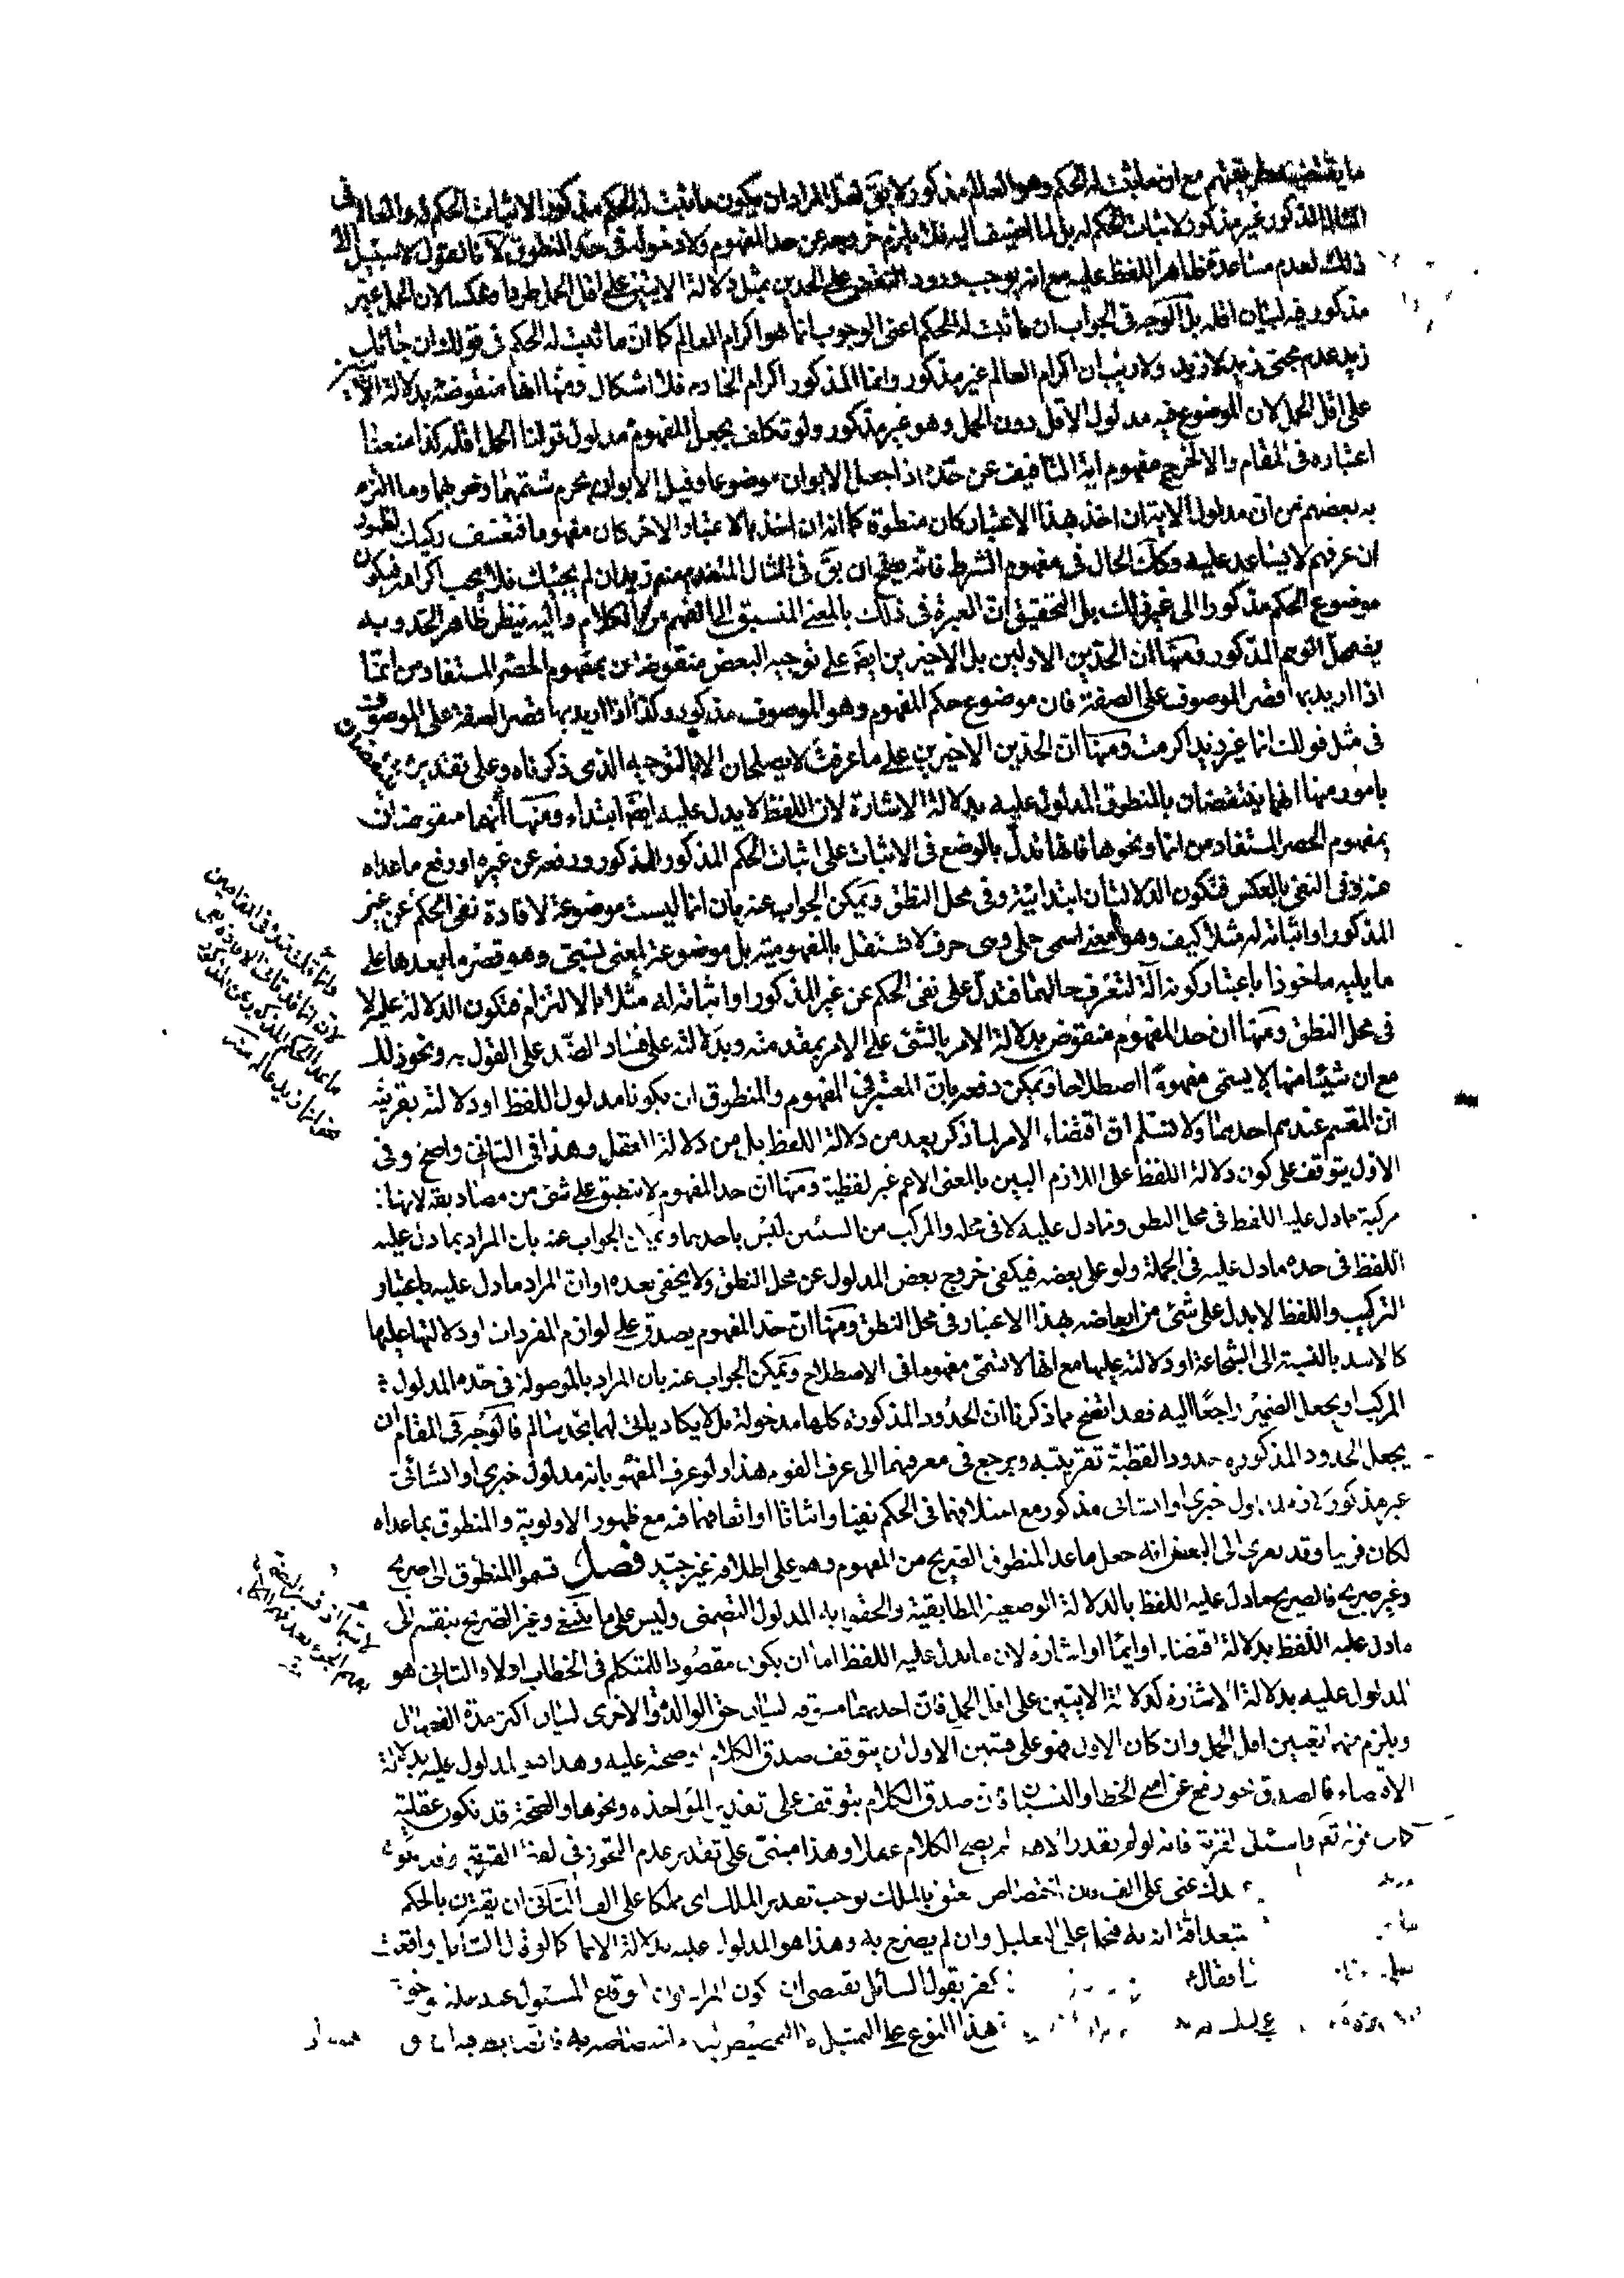 ما يقتضيه طريقتهم مع ان ما يثبت له الحكم وهو العالم مذكور لا يق لعل المراد ان يكون ما ثبت له الحكم مذكورا لاثبات الحكم له والعالم فى
المثال المذكور غير مذكور لاثبات الحكم له بل لما اضيف اليه فلا يلزم خروجه عن حد المفهوم ولا دخوله فى حد المنطوق لانا نقول لا سبيل الى
ذلك لعدم مساعدة ظاهر اللفظ عليه مع انه يوجب ورود النقض على الحدين بمثل دلالة الايتين على اقل الحمل طردا وعكسا لان الحمل غير
مذكور فيه لبيان اقله بل الوجه فى الجواب ان ما ثبت له الحكم اعنى الوجوب انما هو اكرام العالم كما ان ما ثبت له الحكم فى قولك ان جائك
زيد عدم مجئ زيد لا زيد ولا ريب ان اكرام العالم غير مذكور وانما المذكور اكرام الخادم فلا اشكال ومنها انها منقوضة بدلالة الايتين
على اقل الحمل لان الموضوع فيه مدلول الاقل دون الحمل وهو غير مذكور ولو تكلف بجعل المفهوم مدلول قولنا الحمل اقله كذا منعنا
اعتباره فى المقام والا لخرج مفهوم اية التافيف عن حده اذا جعل الابوان موضوعا وقيل الابوان يحرم شتمهما وضربهما وما التزم
به بعضهم من ان مدلول الايتان اخذ بهذا الاعتبار كان منطوقا كما انه ان اخذ بالاعتبار الاخر كان مفهوما فتعسف ركيك لظهور
ان عرفهم لا يساعد عليه وكك الحال فى مفهوم الشرط فانه يصح ان يق فى المثال المتقدم منه زيد ان لم يجئك فلا يجب اكرامه فيكون
موضوع الحكم مذكورا الى غير ذلك بل التحقيق ان العبرة فى ذلك بالمعنى المنسبق الى الفهم من الكلام واليه ينظر ظاهر الحد وبه
يضمحل التوهم المذكور ومنها ان الحدين الاولين بل الاخيرين ايضا على توجيه البعض منقوضان بمفهوم الحصر المستفاد من انما
اذا اريد بها قصر الموصوف على الصفة فان موضوع حكم المفهوم وهو الموصوف مذكور وكذا اذا اريد بها قصر الصفة على الموصوف
فى مثل قولك انما غير زيد اكرمت ومنها ان الحدين الاخيرين على ما عرفت لا يصلحان الا بالتوجيه الذى ذكرناه وعلى تقديره ينتقضان
بامور منها انهما ينتقضان بالمنطوق المدلول عليه بدلالة الاشارة لان اللفظ لا يدل عليه ايضا ابتداء ومنها انهما منقوضان
بمفهوم الحصر المستفاد من انما ونحوها فانها تدل بالوضع فى الاثبات على اثبات الحكم المذكور للمذكور ورفعه عن غيره او رفع ما عداه
عنه وفى النفى بالعكس فتكون الدلالتان ابتدائية وفى محل النطق ويمكن الجواب عنه بان انما ليست موضوعة لافادة نفى الحكم عن غير
المذكور او اثباته له مثلا كيف وهو معنى اسمى جملى وهى حرف لا تستقل بالمفهومية بل موضوعة لمعنى نسبى وهو قصر ما بعدها على
ما يليه ماخوذا باعتبار كونه آلة لتعرف حالهما فتدل على نفى الحكم عن غير المذكور او اثباته له مثلا بالالتزام فتكون الدلالة عليه لا
فى محل النطق ومنها ان حد المفهوم منقوض بدلالة الامر بالشئ على الامر بمقدمته وبدلالته على فساد الضد على القول به ونحو ذلك
مع ان شيئا منها لا يسمى مفهوما اصطلاحا ويمكن دفعه بان المعتبر فى المفهوم والمنطوق ان يكونا مدلول اللفظ او دلالته بقرينة
ان المقسم عندهم احدهما ولا نسلم ان اقتضاء الامر لما ذكر يعد من دلالة اللفظ بل من دلالة العقل وهذا فى الثانى واضح وفى
الاول يتوقف على كون دلالة اللفظ على اللازم البين بالمعنى الاعم غير لفظية ومنها ان حد المفهوم لا ينطبق على شئ من مصاديقه لانها
مركبة مما دل عليه اللفظ فى محل النطق ومما دل عليه لا فى محله والمركب من الشيئين ليس باحدهما ويمكن الجواب عنه بان المراد بما دل عليه
اللفظ فى حده ما دل عليه فى الجملة ولو على بعضه فيكفى خروج بعض المدلول عن محل النطق ولا يخفى بعده او ان المراد ما دل عليه باعتبار
التركيب واللفظ لا يدل على شئ من ابعاضه بهذا الاعتبار فى محل النطق ومنها ان حد المفهوم يصدق على لوازم المفردات او دلالتها عليها
كالاسد بالنسبة الى الشجاعة او دلالته عليها مع انها لا تسمى مفهوما فى الاصطلاح ويمكن الجواب عنه بان المراد بالموصولة فى حده المدلول
المركب او يجعل الضمير راجعا اليه فقد اتضح مما ذكرنا ان الحدود المذكورة كلها مدخولة بل لا يكاد يلفى لهما بحد سالم فالوجه فى المقام ان
يجعل الحدود المذكورة حدودا لفظية تقريبية ويرجع فى معرفتهما الى عرف القوم هذا ولو عرف المفهوم بانه مدلول خبرى او انشائى
غير مذكور لازم لمدلول خبرى او انشائى مذكور مع اختلافهما فى الحكم نفيا واثباتا او اتفاقهما فيه مع ظهور الاولوية والمنطوق بما عداه
لكان قريبا وقد يعزى الى البعض انه جعل ما عدا المنطوق الصريح من المفهوم وهو على اطلاقه غير جيد فصل قسموا المنطوق الى صريح
وغير صريح فالصريح ما دل عليه اللفظ بالدلالة الوضعية المطابقية والحقوا به المدلول التضمنى وليس على ما ينبغى وغير الصريح ينقسم الى
ما دل عليه اللفظ بدلالة اقتضاء او ايماء او اشارة لان ما يدل عليه اللفظ اما ان يكون مقصودا للمتكلم فى الخطاب اولا والثانى هو
المدلول عليه بدلالة الاشارة كدلالة الايتين على اقل الحمل فان احديهما مسوقه لبيان حق الوالدة والاخرى لبيان اكثر مدة الفصال
ويلزم منهما تعيين اقل الحمل وان كان الاول فهو على قسمين الاول ان يتوقف صدق الكلام او صحة عليه وهذا هو المدلول عليه بدلالة
الاقتضاء فالصدق نحو رفع عن امتى الخطا والنسيان فان صدق الكلام يتوقف على تقدير المؤاخذه ونحوها والصحة قد تكون عقلية
كما فى قوله تعم واسئل القرية فانه لو لم يقدر الاهل لم يصح الكلام عقلا وهذا مبنى على تقدير عدم التجوز فى لفظ القرية وقد يكون
عبدك عنى على الف فان اختصاص العتق بالملك يوجب تقدير الملك اى مملكا على الف الثانى ان يقترن بالحكم
يستبعد اقترانه به فيحمل على التعليل وان لم يصرح به وهذا هو المدلول عليه بدلالة الايماء كما لو قال السائل واقعت
فقال كفر بقول السائل يقتضى ان يكون المراد ان الوقاع المسئول عنه
هذا النوع على
وانما قلت مثلا فى المقامين
لان انما قد تاتى لافادة نفى
ما عدا الحكم المذكور عن المذكور
نحو انما زيد عالم منه